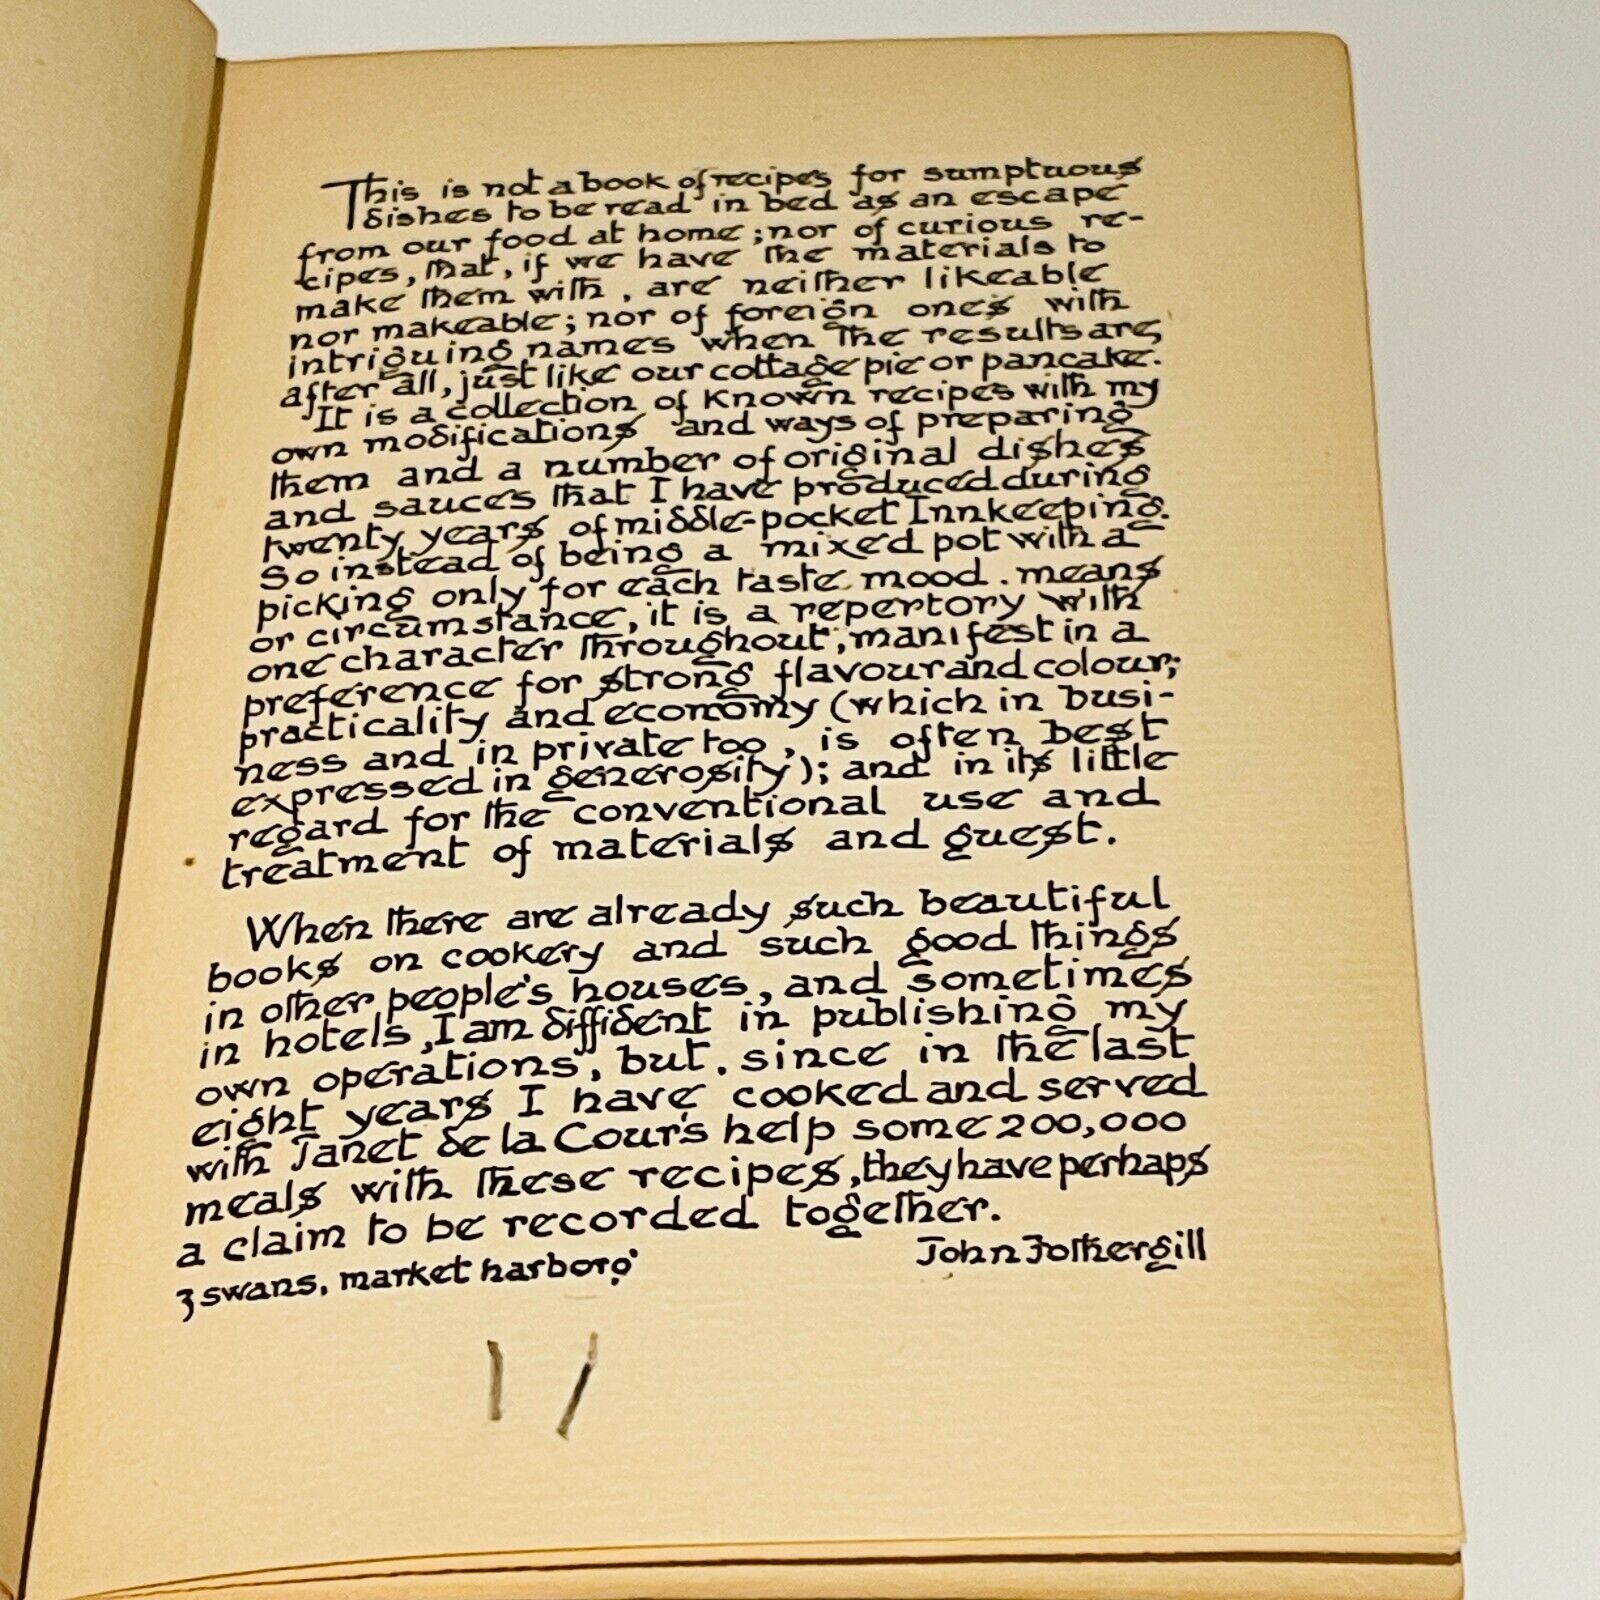 This is not a book of recipes for sumptuous
dishes to be read in bed as an escape
from our food at home; nor of curious re-
cipes, that, if we have the materials to
make them with, are neither likeable
nor makeable; nor of foreign ones with
intriguing names when the results are,
after all, just like our cottage pie or pancake.
It is a collection of known recipes with my
own modifications and ways of preparing
them and a number of original dishes
and sauces that I have produced during
twenty years of middle-pocket Innkeeping.
So instead of being a mixed pot with a
picking only for each taste mood. means
or circumstance, it is a repertory with
one character throughout; manifest in a
preference for strong flavour and colour;
practicality and economy (which in busi-
ness and in private too, is often best
expressed in generosity); and in its little
regard for the conventional use and
treatment of materials and guest.
When there are already such beautiful
books on cookery and such good things
in other people's houses, and sometimes
in hotels, I am diffident in publishing my
own operations, but, since in the last
eight years I have cooked and served
with Janet de la Cour's help some 200,000
meals with these recipes, they have perhaps
a claim to be recorded together.
John Fothergill
3 swans, market harboro'